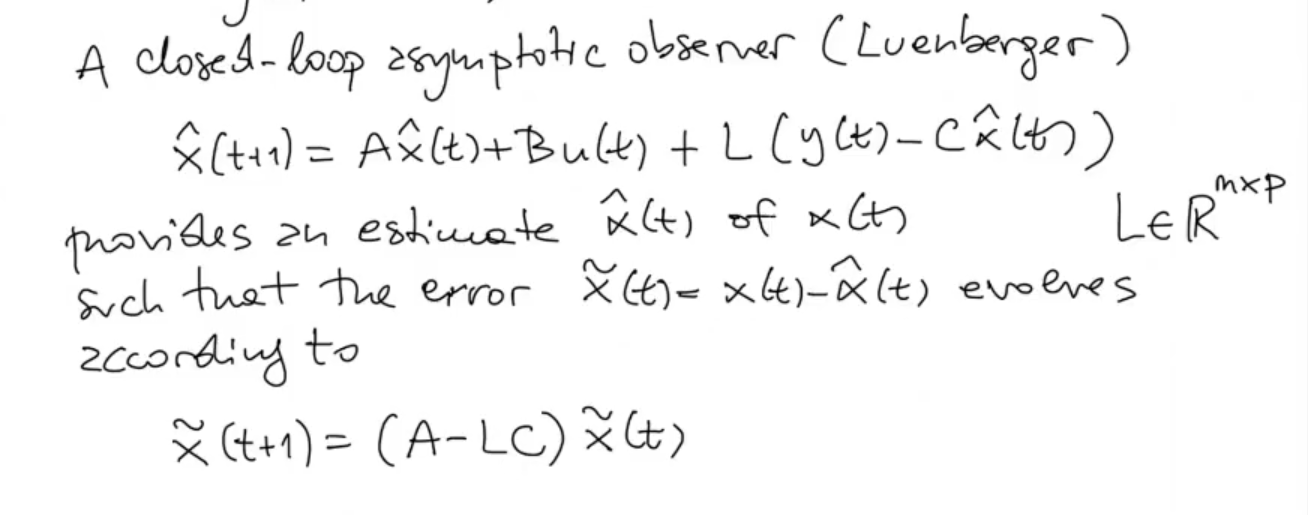 A closed-loop asymptotic observer (Luenberger)
x̂(t+1) = Ax̂(t)+Bu(t) + L(y(t)-Cx̂(t))
provides an estimate x̂(t) of x(t) L∈ℝⁿˣᵖ
such that the error x̃(t)= x(t)-x̂(t) evolves
according to
x̃(t+1) = (A-LC) x̃(t)